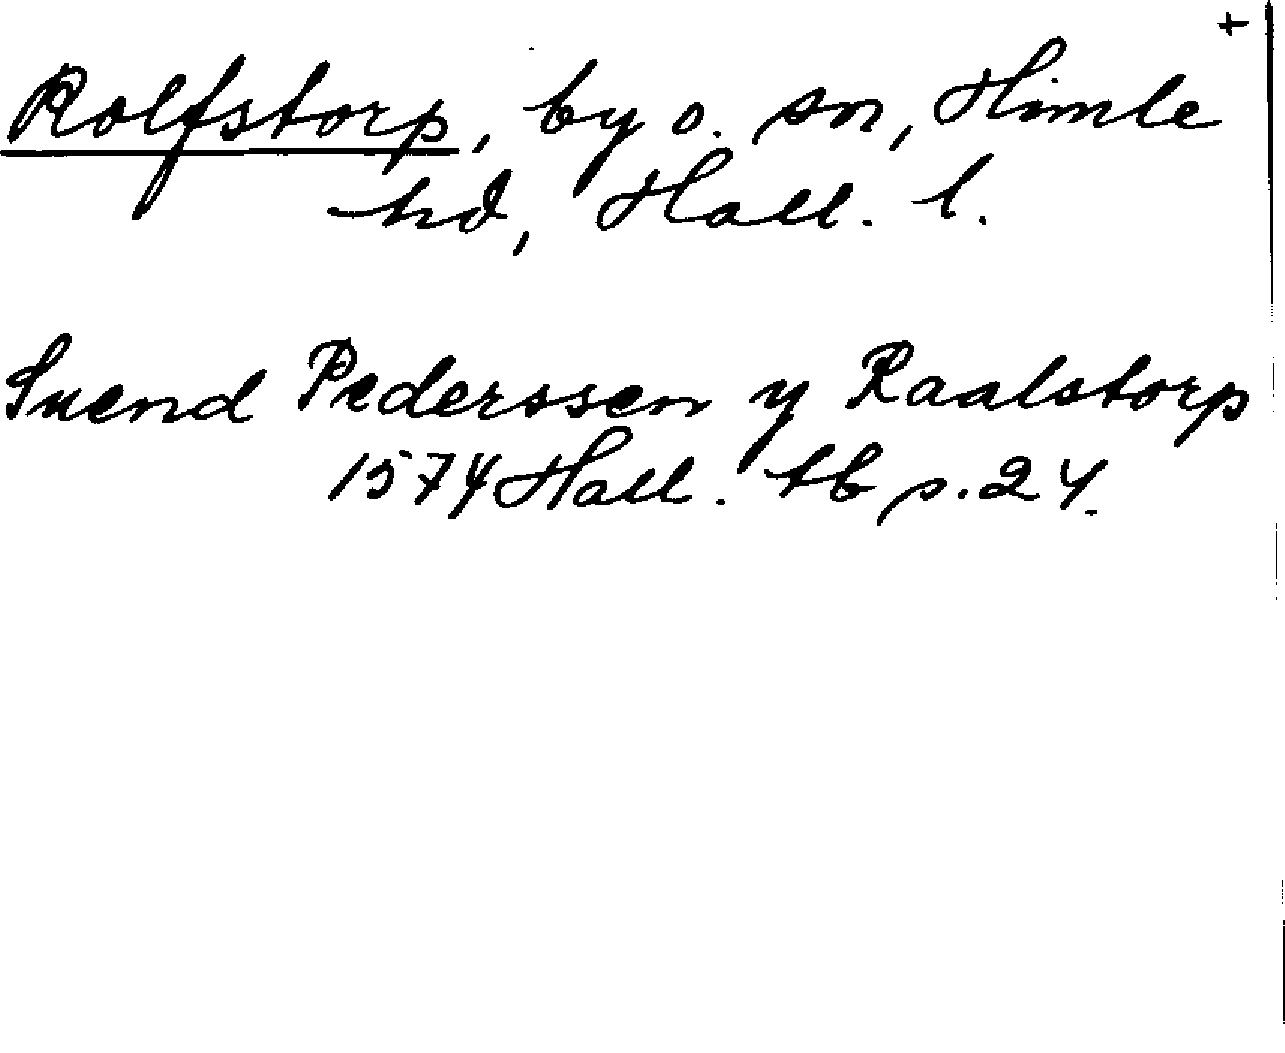 +
Rolfstorp, by o. sn, Himle
hd, Hall. l.
Suend Pederssen y Raalstorp
1574 Hall. tb s. 24.